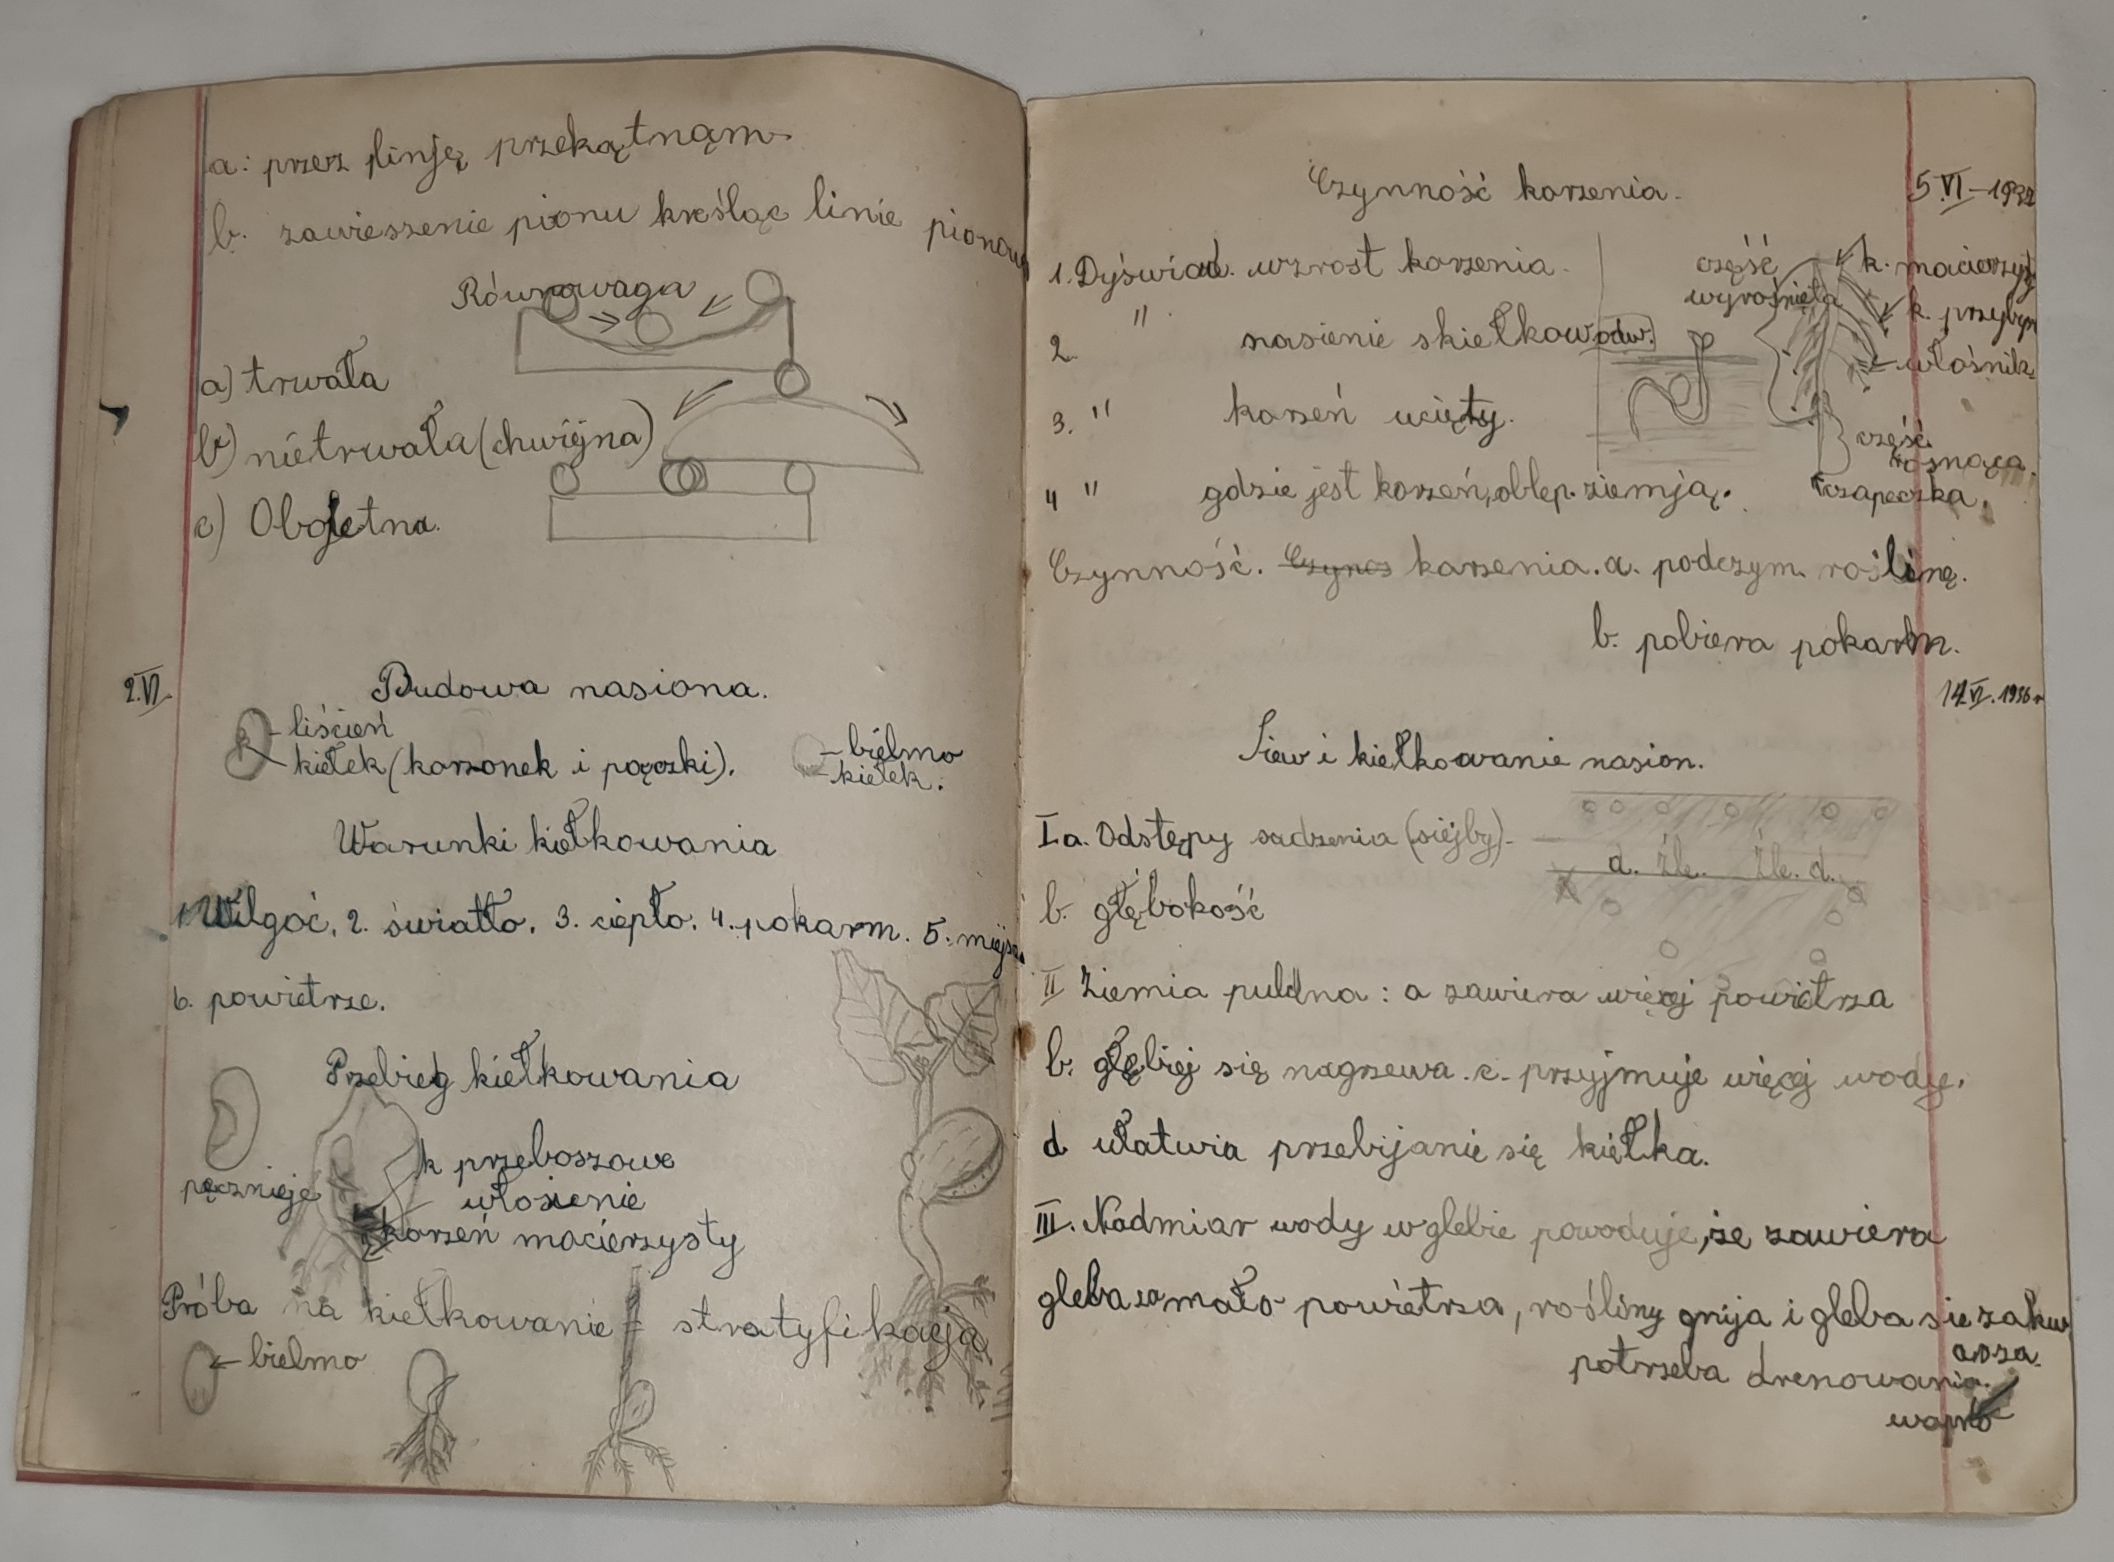 a: przez linję przekątnąm
b. zawieszenie pionu kreśląc linie pionową
Równowaga
a) trwała
b) nietrwała (chwijna)
c) Obojętna.
2.VI
Budowa nasiona.
- liścień
kiełek (korzonek i pączki).
- bielmo
- kiełek.
Warunki kiełkowania
1. Wilgoć. 2. światło. 3. ciepło. 4. pokarm. 5. miejsce
6. powietrze.
Przebieg kiełkowania
pęcznieje
k przyboszowe
włosienie
korzeń macierzysty
Próba na kiełkowanie = stratyfikacja
bielmo
Czynność korzenia.
5.VI-
1. Dyświad. wzrost korzenia.
2. " nasienie skiełkow odw.
3. " korzeń ucięty.
4 " gdzie jest korzeń, oblep. ziemją.
część
wyrośnięta
k. macierzysty
k. przybysz
włośnik.
część
rosnąca.
czapeczka.
Czynność. Czynos korzenia. a. podczym. roślinę.
b. pobiera pokarm.
14 VI. 1936 r
Siew i kiełkowanie nasion.
I a. Odstępy sadzenia (siejby).
d. źle. źle. d.
b. głębokość
II Ziemia pulchna: a zawiera więcej powietrza
b. głębiej się nagrzewa. c. przyjmuje więcej wody.
d ułatwia przebijanie się kiełka.
III. Nadmiar wody w glebie powoduje, że zawiera
gleba za mało powietrza, rośliny gnija i gleba sie zakw
asza.
potrzeba drenowania.
wapno